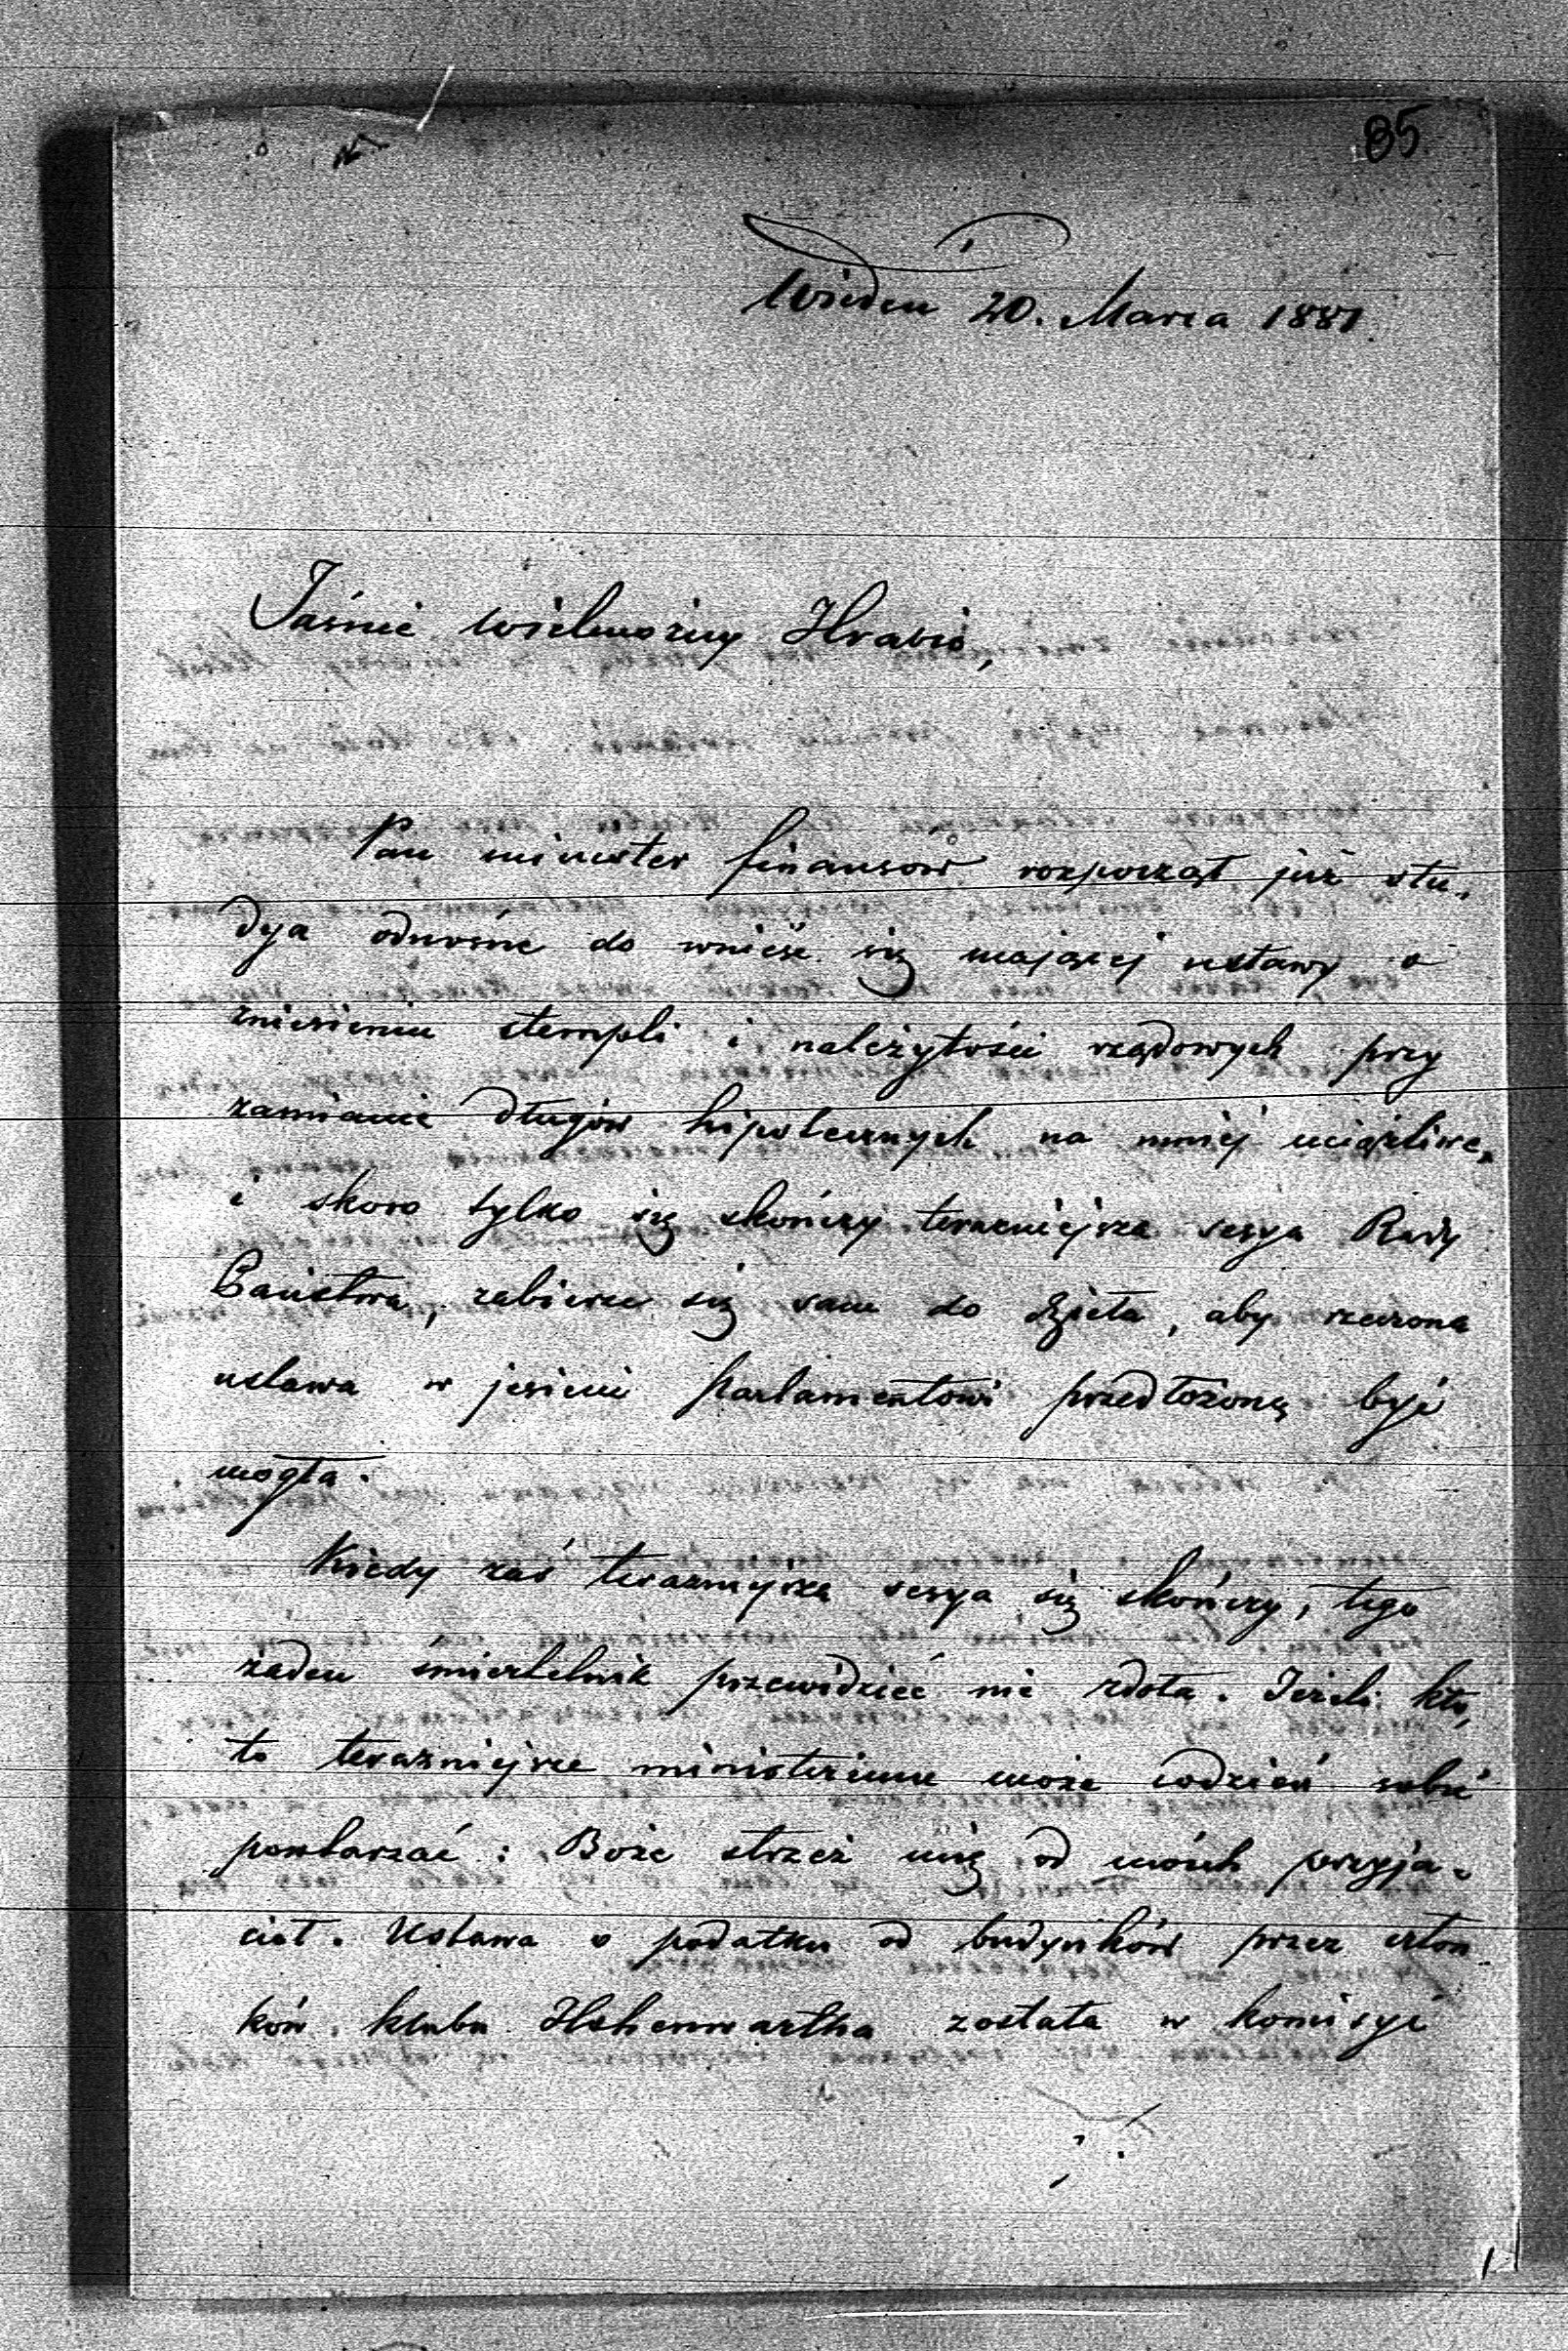 85
Wiedeń 20. Marca 1881
Jaśnie Wielmożny Hrabio,
Pan minister finansów rozpoczął już stu-
dya odnośne do wnieść się mającej ustawy o
zniesieniu stempli i należytości rządowych przy
zamianie długów hipotecznych na mniej uciążliwe,
i skoro tylko się skończy teraźniejsza sesya Rady
Państwa, zabierze się sam do dzieła, aby rzeczona
ustawa w jesieni parlamentowi przedłożoną być
mogła.
Kiedy zaś teraźniejsza sesya się skończy, tego
żaden śmiertelnik przewidzieć nie zdoła. Jeżeli kto,
to teraźniejsze ministerium może codzień sobie
powtarzać: Boże strzeż mię od moich przyja-
ciół. Ustawa o podatku od budynków przez człon
ków klubu Hohenwartha została w komisyi